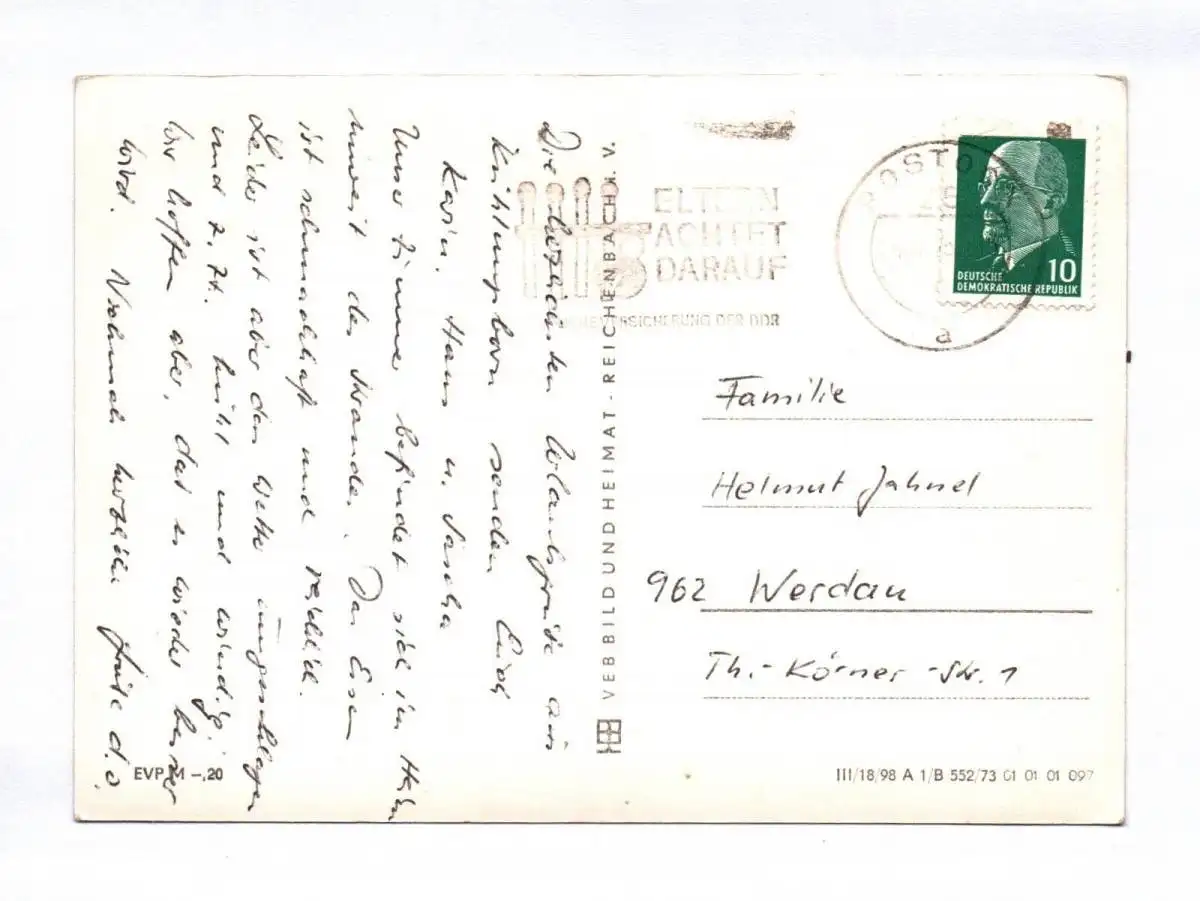 Die herzlichsten Urlaubsgrüße aus
Kühlungsborn senden Euch
Karin, Hans u. Sascha
Unser Zimmer befindet sich im
unweit des Strandes. Das Essen
ist schmackhaft und reichlich.
Leider ist aber das Wetter umgeschlagen
und z. Zt. kühl und windig.
Wir hoffen aber, daß es wieder besser
wird. Nochmals herzliche Grüße d. O.
EVP M -,20
VEB BILD UND HEIMAT - REICHENBACH I. V.
ELTERN
ACHTET
DARAUF
VERSICHERUNG DER DDR
ROSTO
a
DEUTSCHE
DEMOKRATISCHE REPUBLIK
10
Familie
Helmut Jahnel
962 Werdau
Th.-Körner-Str. 1
III/18/98 A 1/B 552/73 01 01 01 097